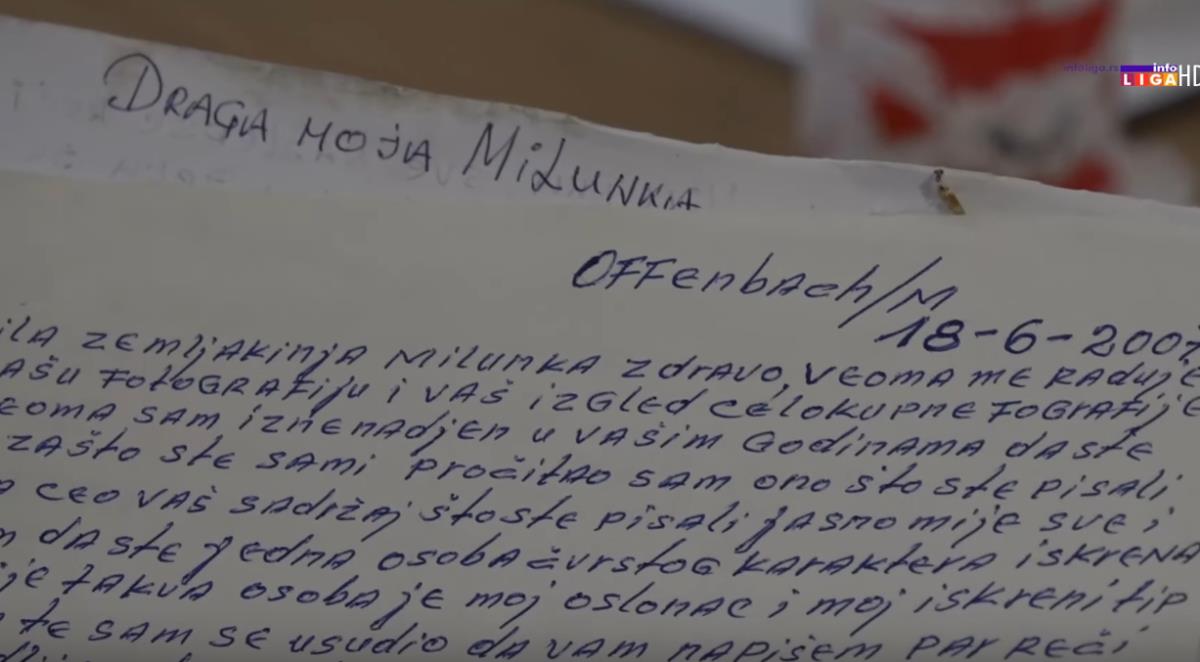 infoliga.rs info
LIGA HD
DRAGA MOJA MiLUNKA
OFFenbach/M
18-6-2007
ila zemljakinja Milunka zdravo, veoma me raduje
ašu fotografiju i vaš izgled celokupne fografije
eoma sam iznenadjen u vašim godinama da ste
zašto ste sami pročitao sam ono što ste pisali
ceo vaš sadržaj što ste pisali jasno mi je sve i
da ste jedna osoba čvrstog karaktera iskrena
je takva osoba je moj oslonac i moj iskreni tip
te sam se usudio da vam napišem par reči